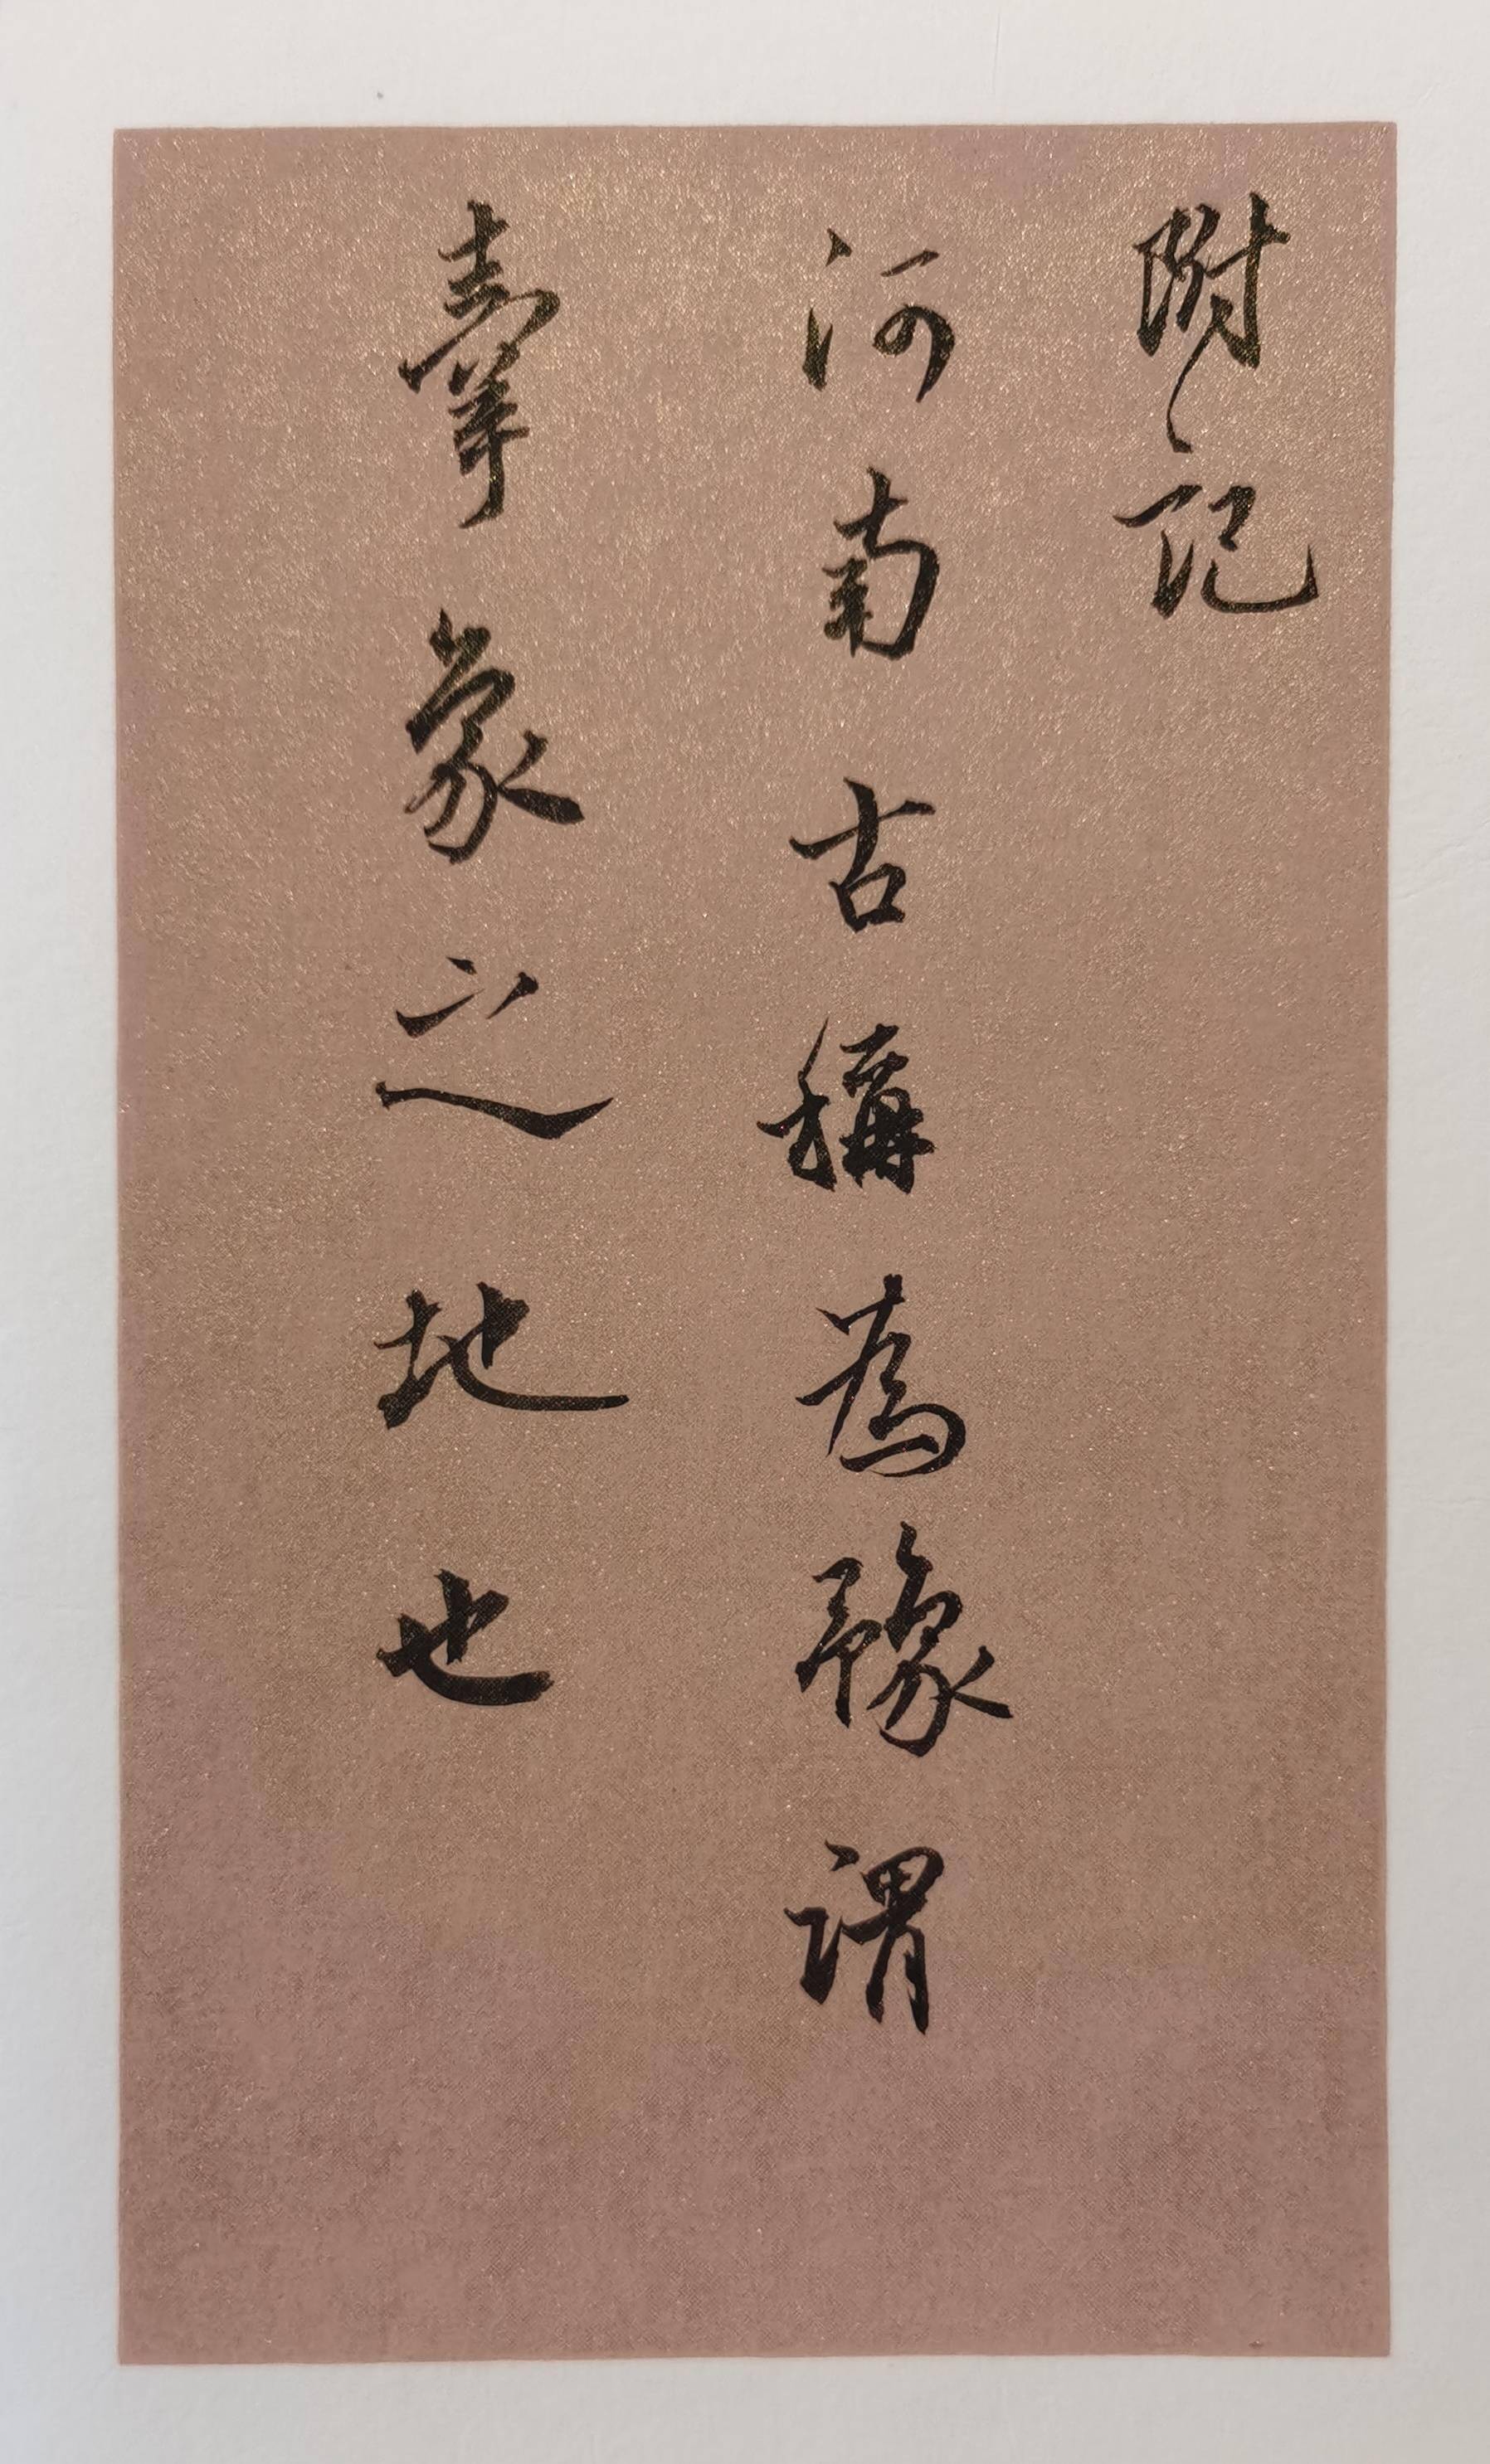 附記
河南古稱為豫謂
牽象之地也